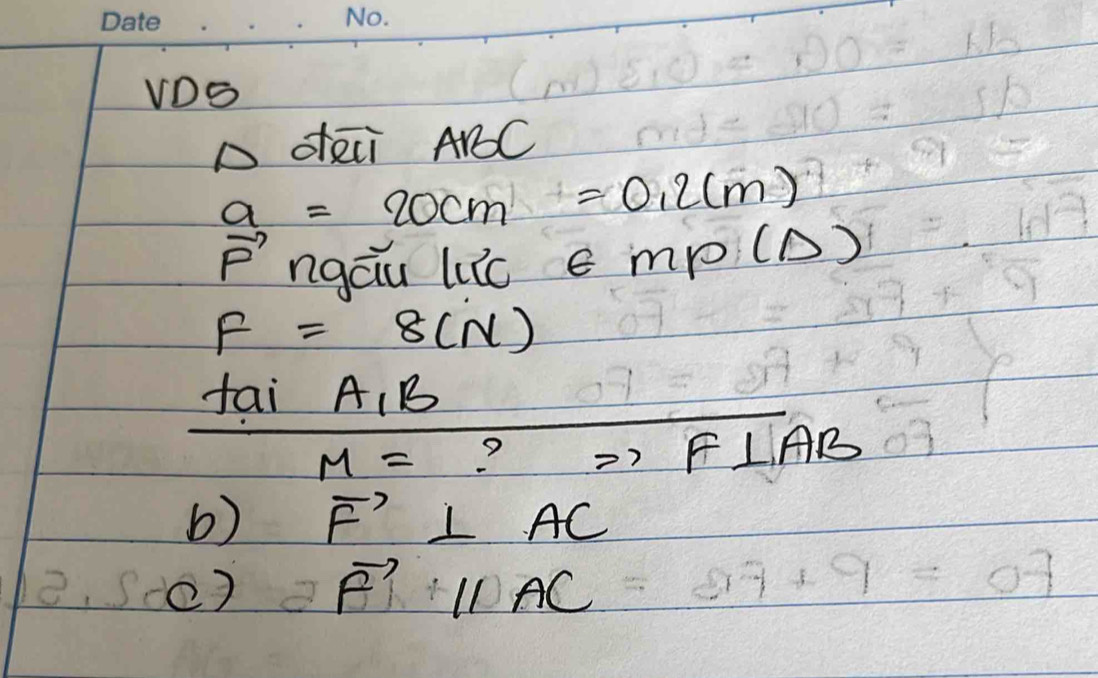 Date . . . . No.
VD5
Δ đều ABC
a = 20cm = 0,2(m)
F⃗ ngẫu lực ∈ mp(Δ)
F = 8(N)
tại A, B
M = ? => F ⊥ AB
b) F⃗ ⊥ AC
c) F⃗ // AC